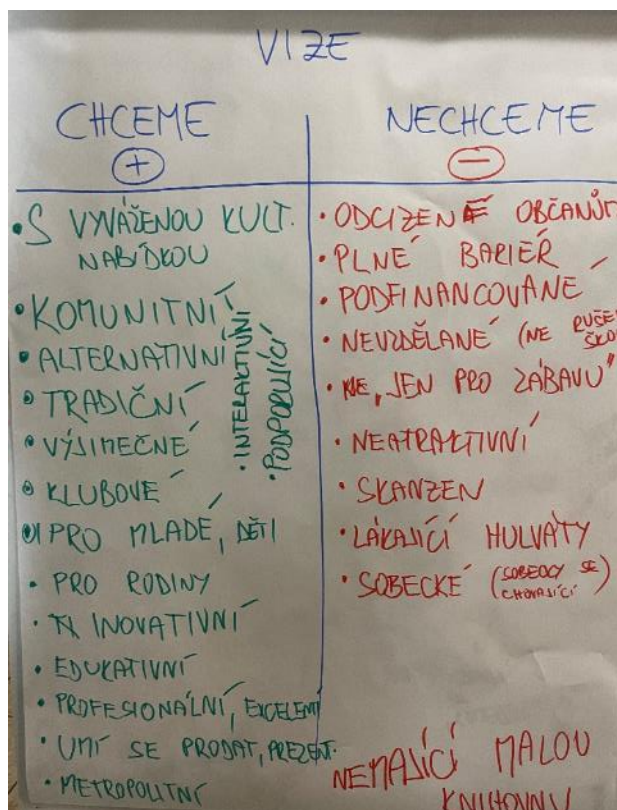 VIZE
CHCEME
+
• S VYVÁŽENOU KULT.
NABÍDKOU
• KOMUNITNÍ
• ALTERNATIVNÍ
• TRADIČNÍ
• VÝJIMEČNÉ
• KLUBOVÉ
• I PRO MLADÉ, DĚTI
• PRO RODINY
• INOVATIVNÍ
• EDUKATIVNÍ
• PROFESIONÁLNÍ, EXCELENT
• UMÍ SE PRODAT, PREZENT.
• METROPOLITNÍ
• INTERAKTIVNÍ
• PODPORUJÍCÍ
NECHCEME
−
• ODCIZENÉ OBČANŮM
• PLNÉ BARIÉR
• PODFINANCOVANÉ
• NEVZDĚLANÉ (NE RUŠE
ŠKO
• NE „JEN PRO ZÁBAVU"
• NEATRAKTIVNÍ
• SKANZEN
• LÁKAJÍCÍ HULVÁTY
• SOBECKÉ (SOBECKY SE
CHOVAJÍCÍ)
NEMAJÍCÍ MALOU
KNIHOVNU